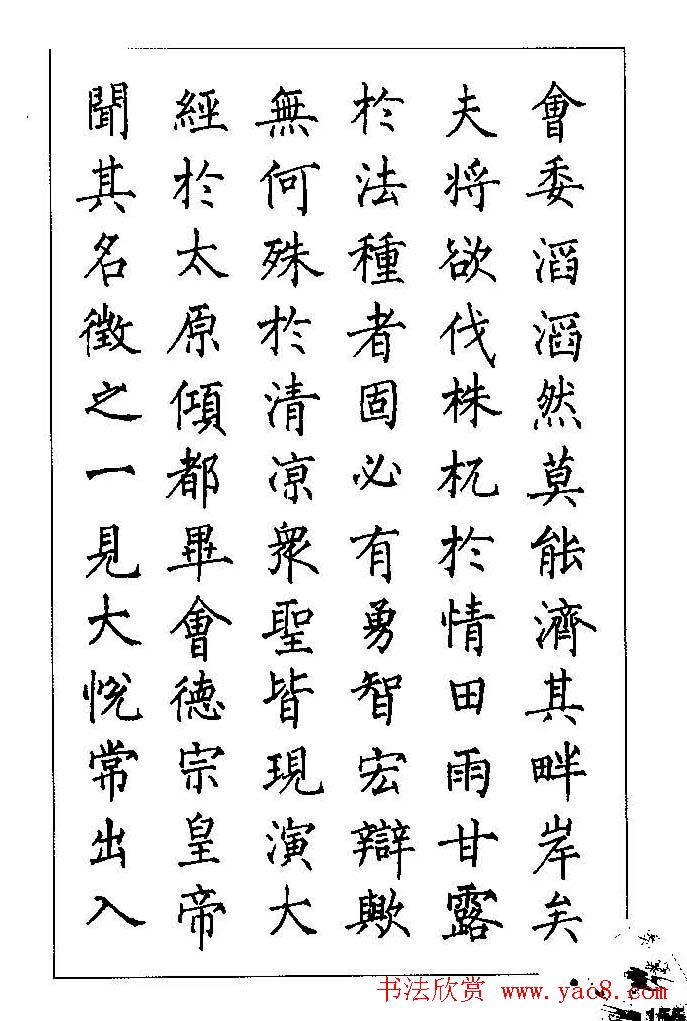 會委滔滔然莫能濟其畔岸矣
夫将欲伐株杌於情田雨甘露
於法種者固必有勇智宏辯歟
無何殊於清凉衆聖皆現演大
經於太原傾都畢會德宗皇帝
聞其名徵之一見大悦常出入
书法欣赏 www.yac8.com